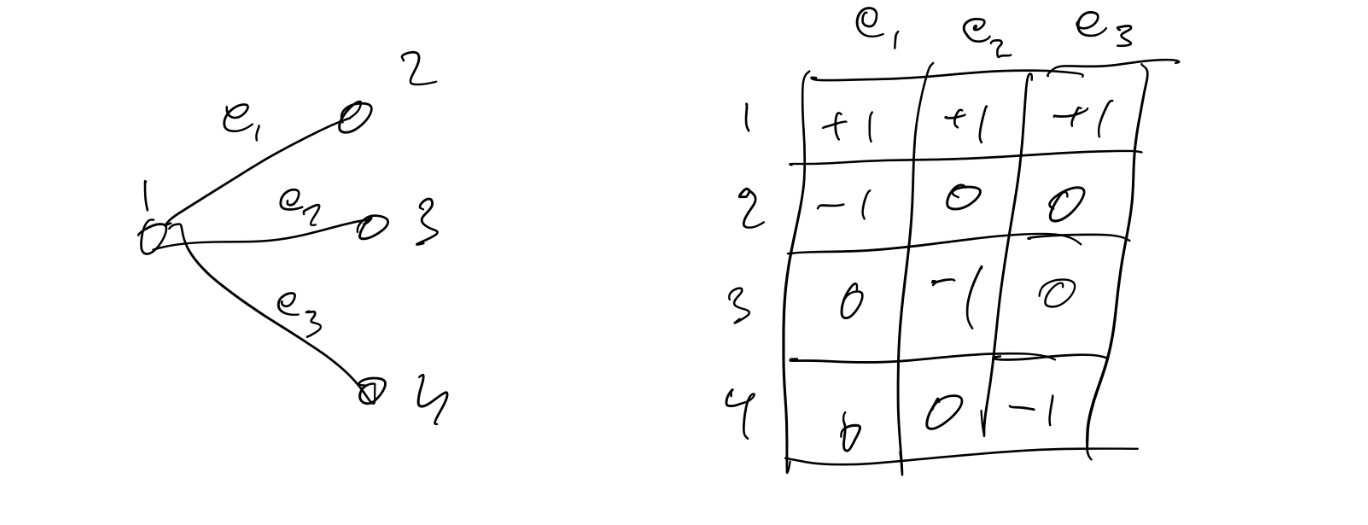 e1 2
1 e2 3
e3 4
e1 e2 e3
1 +1 +1 +1
2 -1 0 0
3 0 -1 0
4 0 0 -1